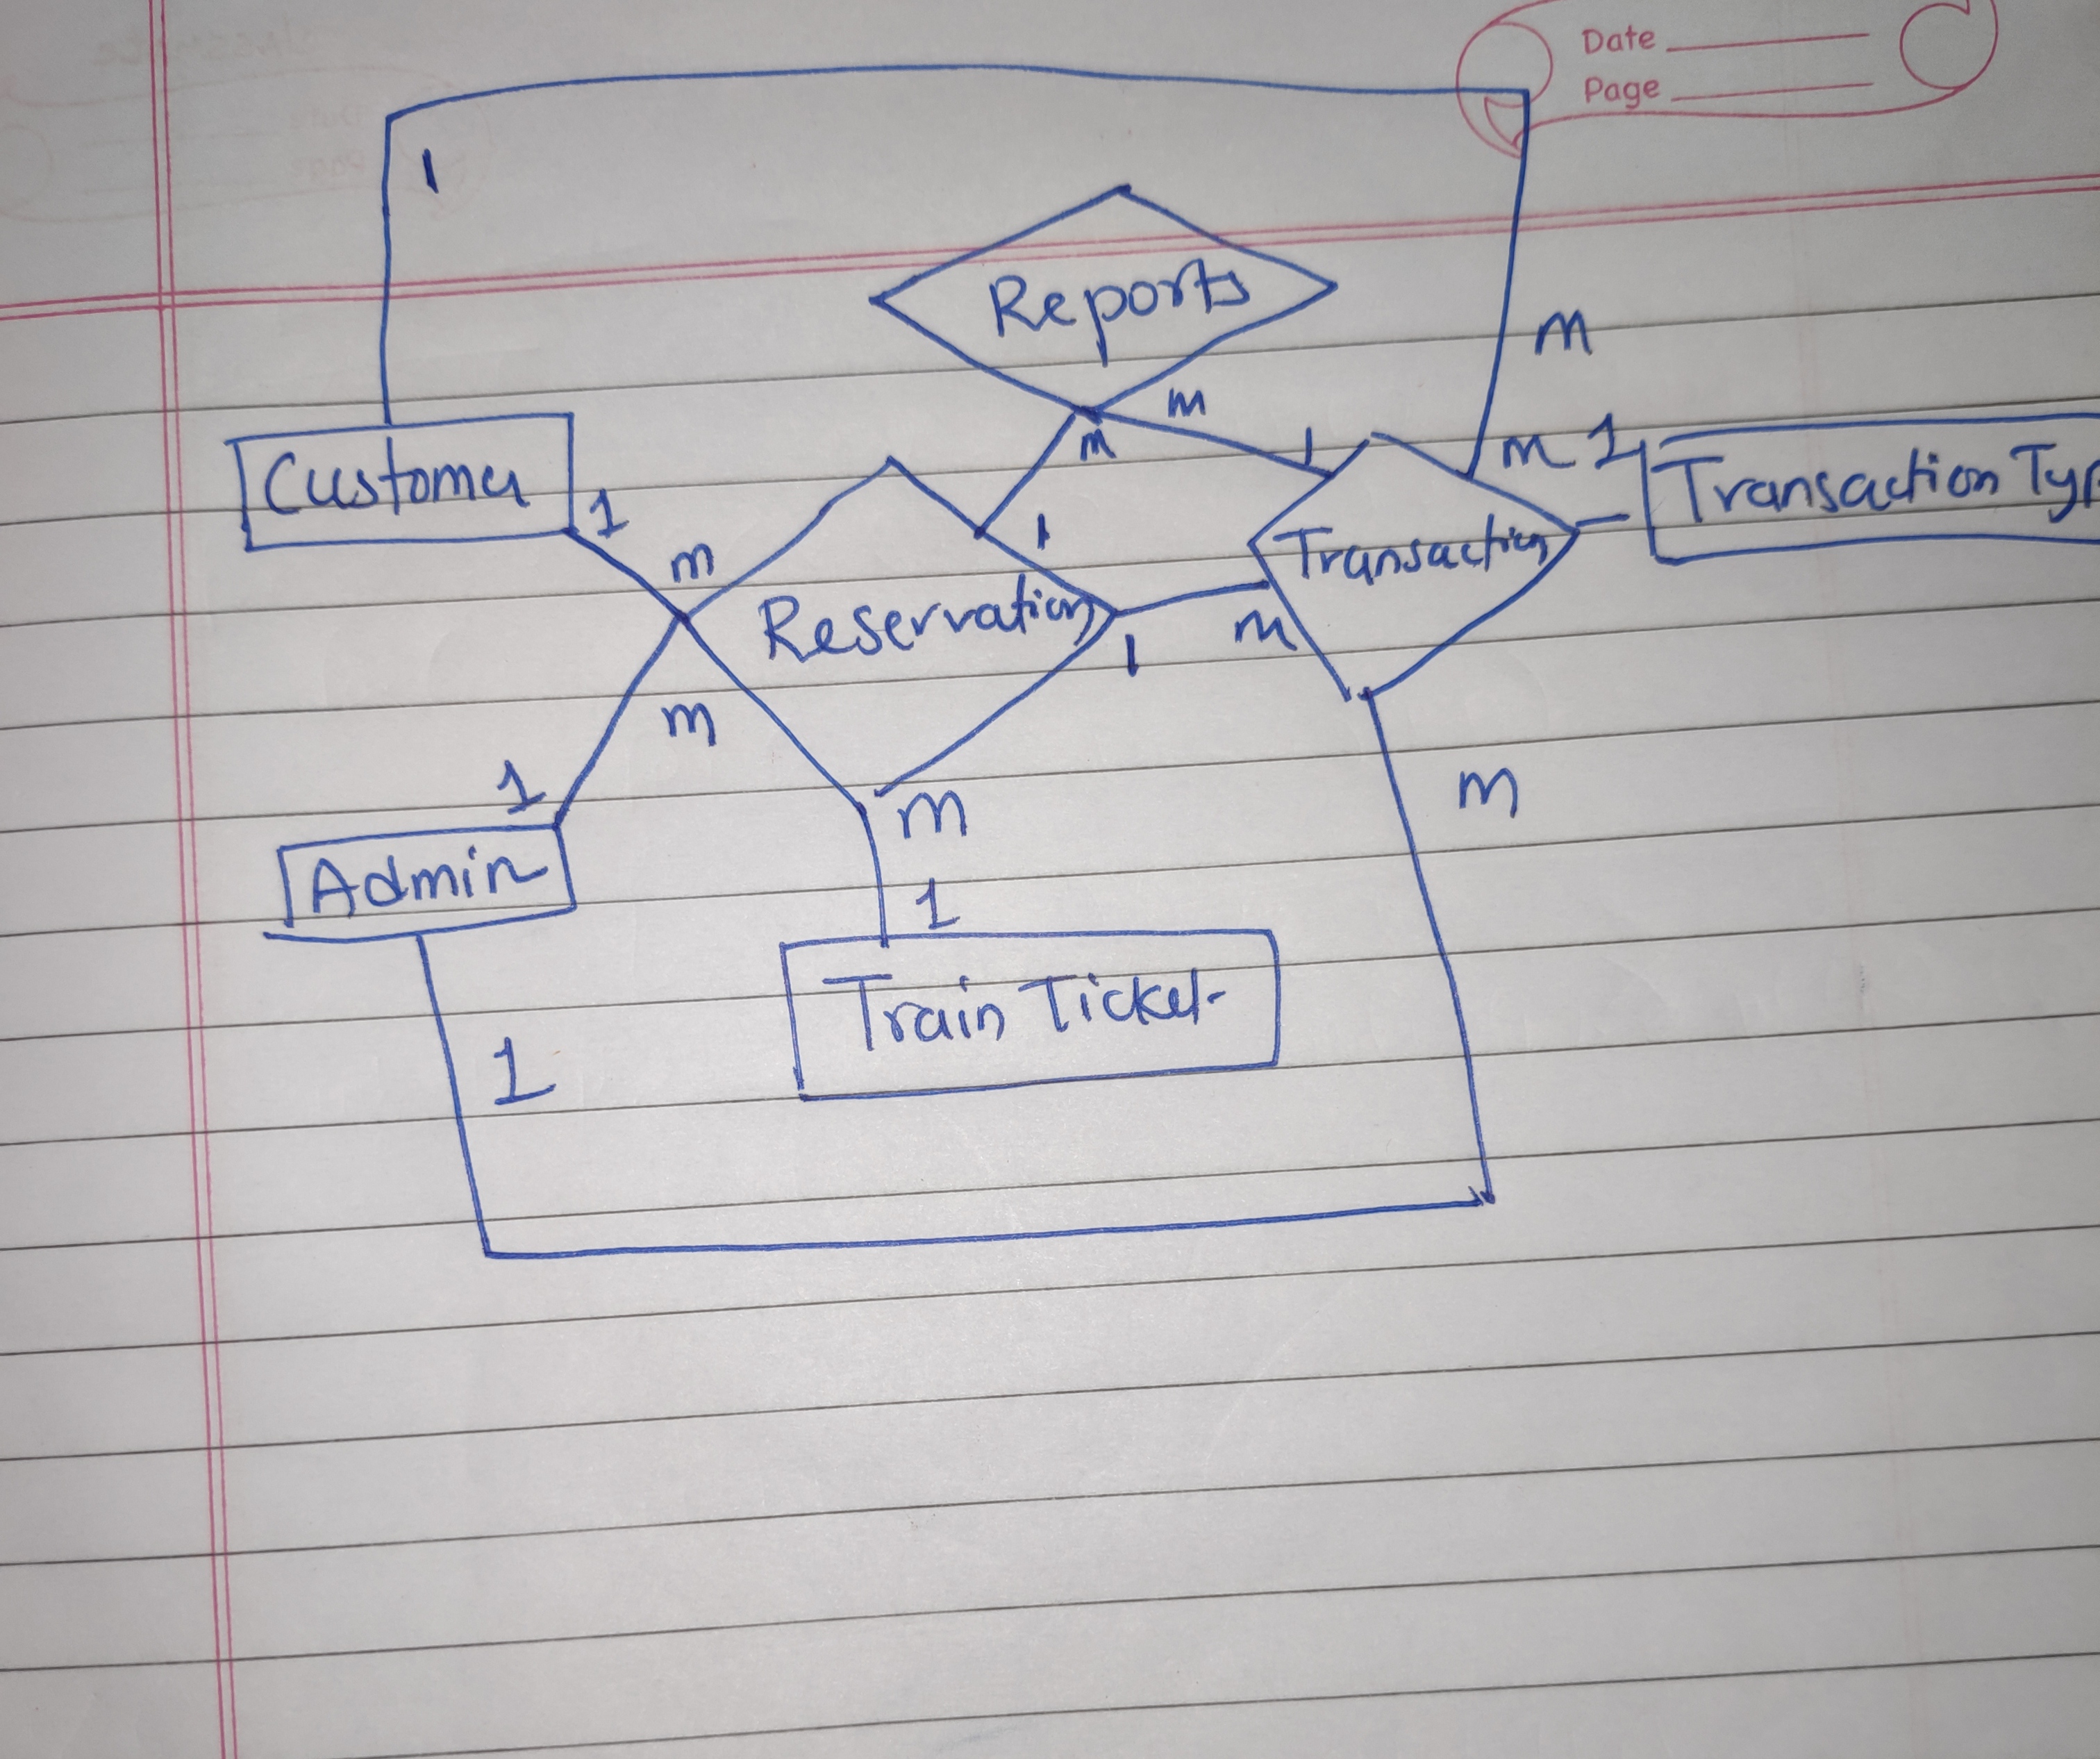 Date
Page
1
Reports
m
m
m
1
m 1
Customer
Transaction Typ
1
1
m
Transaction
Reservation
m
1
m
1
m
m
Admin
1
Train Ticket
1